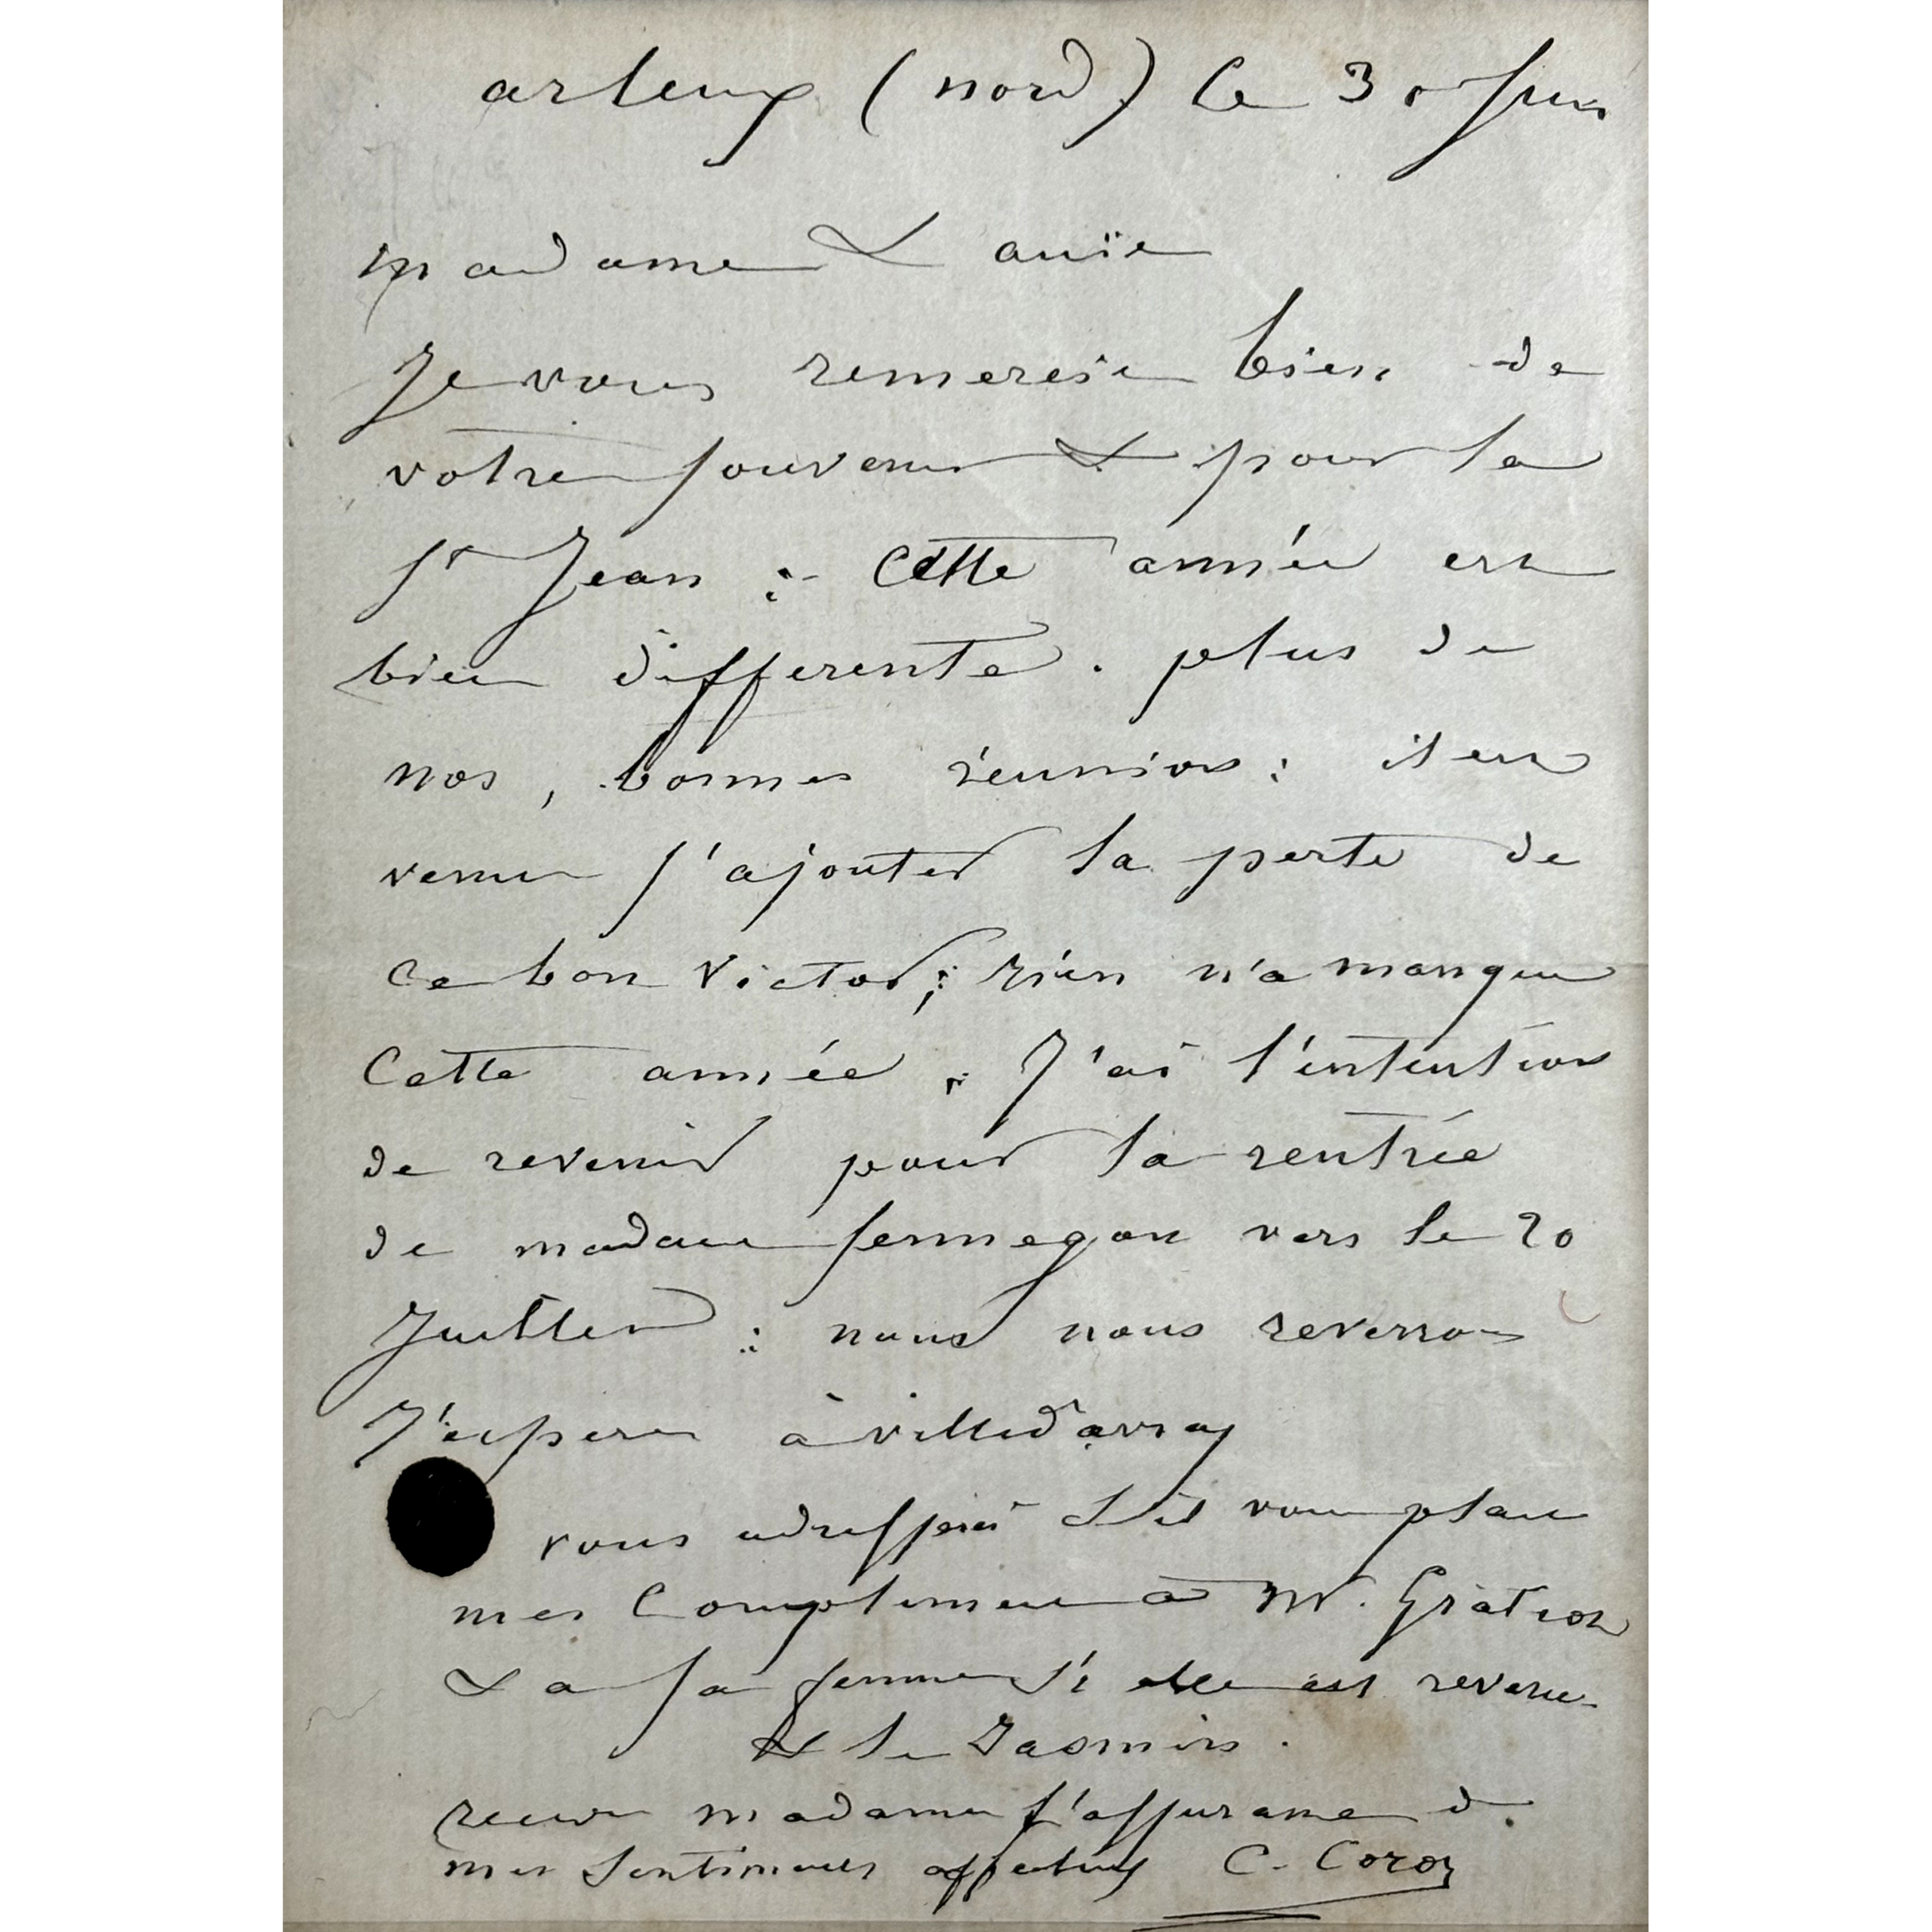 arleux (nord) le 30 Juin
madame & amie
Je vous remercie bien de
votre souvenir & pour la
St Jean : Cette année est
bien differente . plus de
nos , bonnes réunions : il est
venu s'ajouter la perte de
ce bon Victor ; rien n'a manqué
Cette année . J'ai l'intention
de revenir pour la rentrée
de madame Sennegon vers le 20
Juillet : nous nous reverrons
J'espere à villed'avray
vous adresserés S'il vous plait
mes Complimens à Mr. Gratiot
& a sa femme si elle est revenue
& le Jasmin .
recevez madame l'assurance d.
mes Sentimens affectueux C. Corot